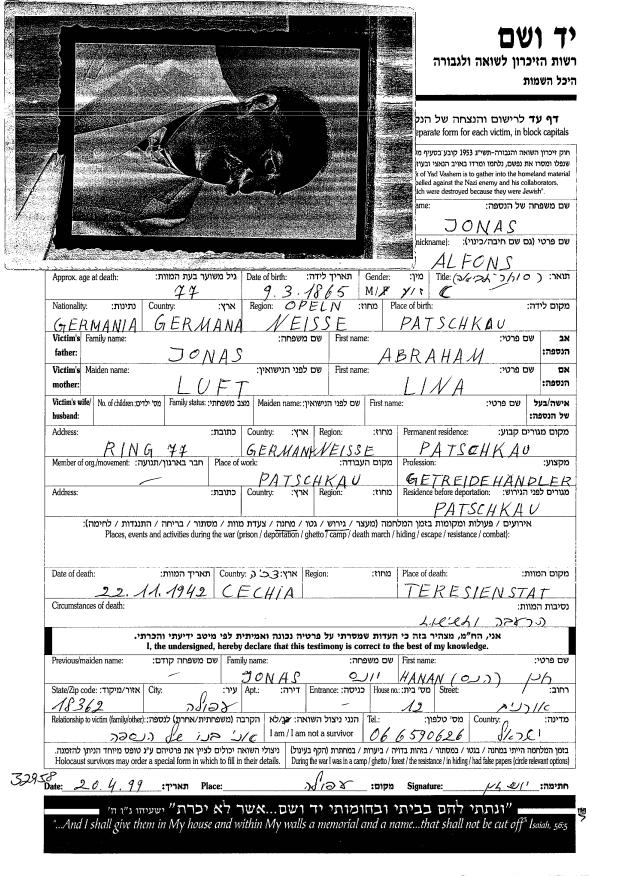 יד ושם
רשות הזיכרון לשואה ולגבורה
היכל השמות
דף עד לרישום והנצחה של הנס
eparate form for each victim, in block capitals
חוק זיכרון השואה והגבורה-תשי"ג 1953 קובע בסעיף מ
שנפלו ומסרו את נפשם, נלחמו ומרדו באויב הנאצי ובעוז
s of Yad Vashem is to gather into the homeland material
belled against the Nazi enemy and his collaborators,
hich were destroyed because they were Jewish".
ame: שם משפחה של הנספה:
JONAS
nickname): שם פרטי (גם שם חיבה/כינוי):
ALFONS
Approx. age at death: גיל משוער בעת המוות: Date of birth: תאריך לידה: Gender: מין: Title: תואר:
77 9.3.1865 M/F ז/נ
Nationality: נתינות: Country: ארץ: Region: מחוז: OPELN Place of birth: מקום לידה:
GERMANIA GERMANA NEISSE PATSCHKAU
Victim's father: Family name: שם משפחה: First name: שם פרטי: אב הנספה:
JONAS ABRAHAM
Victim's mother: Maiden name: שם לפני הנישואין: First name: שם פרטי: אם הנספה:
LUFT LINA
Victim's wife/husband: No. of children: מס' ילדים: Family status: מצב משפחתי: Maiden name: שם לפני הנישואין: First name: שם פרטי: אישה/בעל של הנספה:
Address: כתובת: Country: ארץ: Region: מחוז: Permanent residence: מקום מגורים קבוע:
RING 77 GERMANY NEISSE PATSCHKAU
Member of org./movement: חבר בארגון/תנועה: Place of work: מקום העבודה: Profession: מקצוע:
— PATSCHKAU GETREIDEHÄNDLER
Address: כתובת: Country: ארץ: Region: מחוז: Residence before deportation: מגורים לפני הגירוש:
PATSCHKAU
אירועים / פעולות ומקומות בזמן המלחמה (מעצר / גירוש / גטו / מחנה / צעדת מוות / מסתור / בריחה / התנגדות / לחימה):
Places, events and activities during the war (prison / deportation / ghetto / camp / death march / hiding / escape / resistance / combat):
Date of death: תאריך המוות: Country: ארץ: צ'כיה Region: מחוז: Place of death: מקום המוות:
22.11.1942 CECHIA TERESIENSTAT
Circumstances of death: נסיבות המוות:
הרעבה
אני, הח"מ, מצהיר בזה כי העדות שמסרתי על פרטיה נכונה ואמיתית לפי מיטב ידיעתי והכרתי.
I, the undersigned, hereby declare that this testimony is correct to the best of my knowledge.
Previous/maiden name: שם משפחה קודם: Family name: שם משפחה: First name: שם פרטי:
— JONAS יונס HANAN (הנס) חנן
State/Zip code: אזור/מיקוד: City: עיר: Apt.: דירה: Entrance: כניסה: House no.: מס' בית: Street: רחוב:
18362 עפולה — 12 אורנים
Relationship to victim (family/other): הקרבה (משפחתית/אחרת) לנספה: הנני ניצול השואה: כן/לא Tel.: מס' טלפון: Country: מדינה:
אני בנו של הנספה I am / I am not a survivor 06 6590626 ישראל
ניצולי השואה יכולים לציין את פרטיהם ע"ג טופס מיוחד הניתן להזמנה. בזמן המלחמה הייתי במחנה / בגטו / במסתור / בזהות בדויה / ביערות / במחתרת (הקף בעיגול)
Holocaust survivors may order a special form in which to fill in their details. During the war I was in a camp / ghetto / forest / the resistance / in hiding / had false papers (circle relevant options)
32958
Date: 20.4.99 תאריך: Place: עפולה מקום: Signature: חתימה:
"ונתתי להם בביתי ובחומותי יד ושם...אשר לא יכרת" ישעיהו נ"ו ה'
"...And I shall give them in My house and within My walls a memorial and a name...that shall not be cut off" Isaiah, 56:5